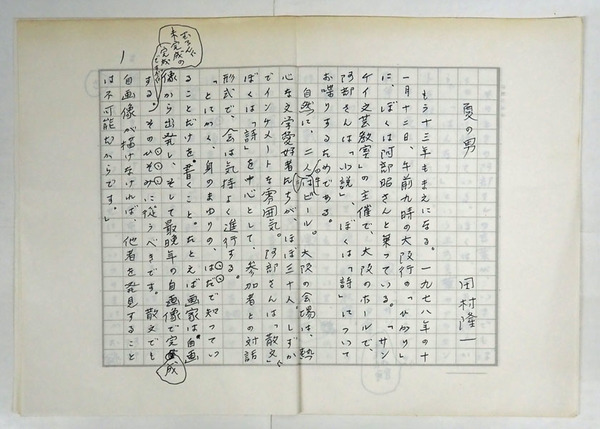 夏の男
田村隆一
もう十三年もまえになる。一九七八年の十
一月十二日、午前九時の大阪行の「ひかり」
に、ぼくは阿部昭さんと乗っている。「サン
ケイ文芸教室」の主催で、大阪のホールで、
阿部さんは「小説」、ぼくは「詩」について
お喋りするためである。
自然に、二人はビール。大阪の会場は、熱
心な文学愛好者たちが、ほぼ三十人。しずか
でインチメートな雰囲気。阿部さんは「散文」、
ぼくは「詩」を中心として、参加者との対話
形式で、会は気持よく進行する。
「とにかく、身のまわりの、はだで知ってい
ることだけを書くこと。たとえば画家は自画
像から出発し、そして最晩年の自画像で完成
する。そのひそみに従うべきです。散文でも
自画像が描けなければ、他者を発見すること
は不可能だからです。」
未完成の
完成
1